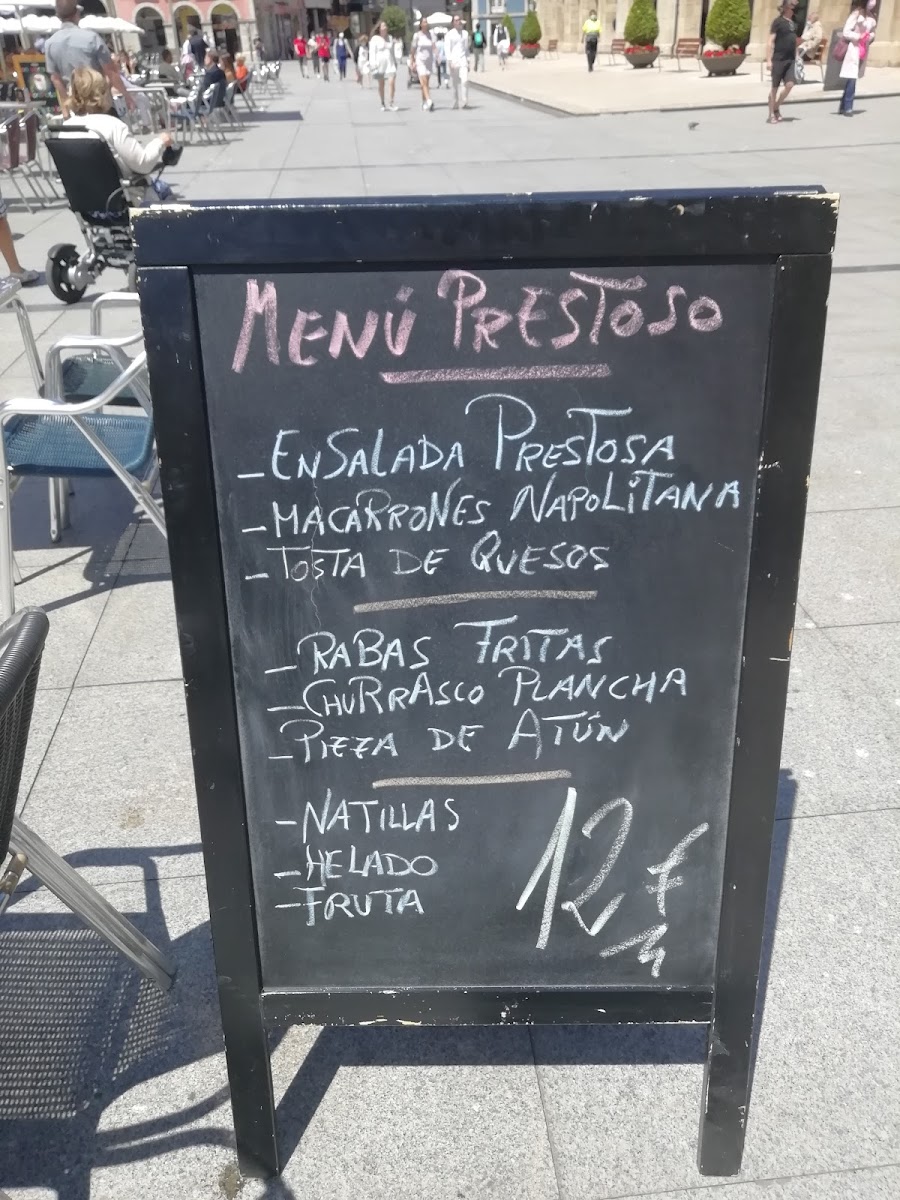 MENÚ PRESTOSO
- ENSALADA PRESTOSA
- MACARRONES NAPOLITANA
- TOSTA DE QUESOS
- RABAS FRITAS
- CHURRASCO PLANCHA
- PIZZA DE ATÚN
- NATILLAS
- HELADO
- FRUTA
12 €